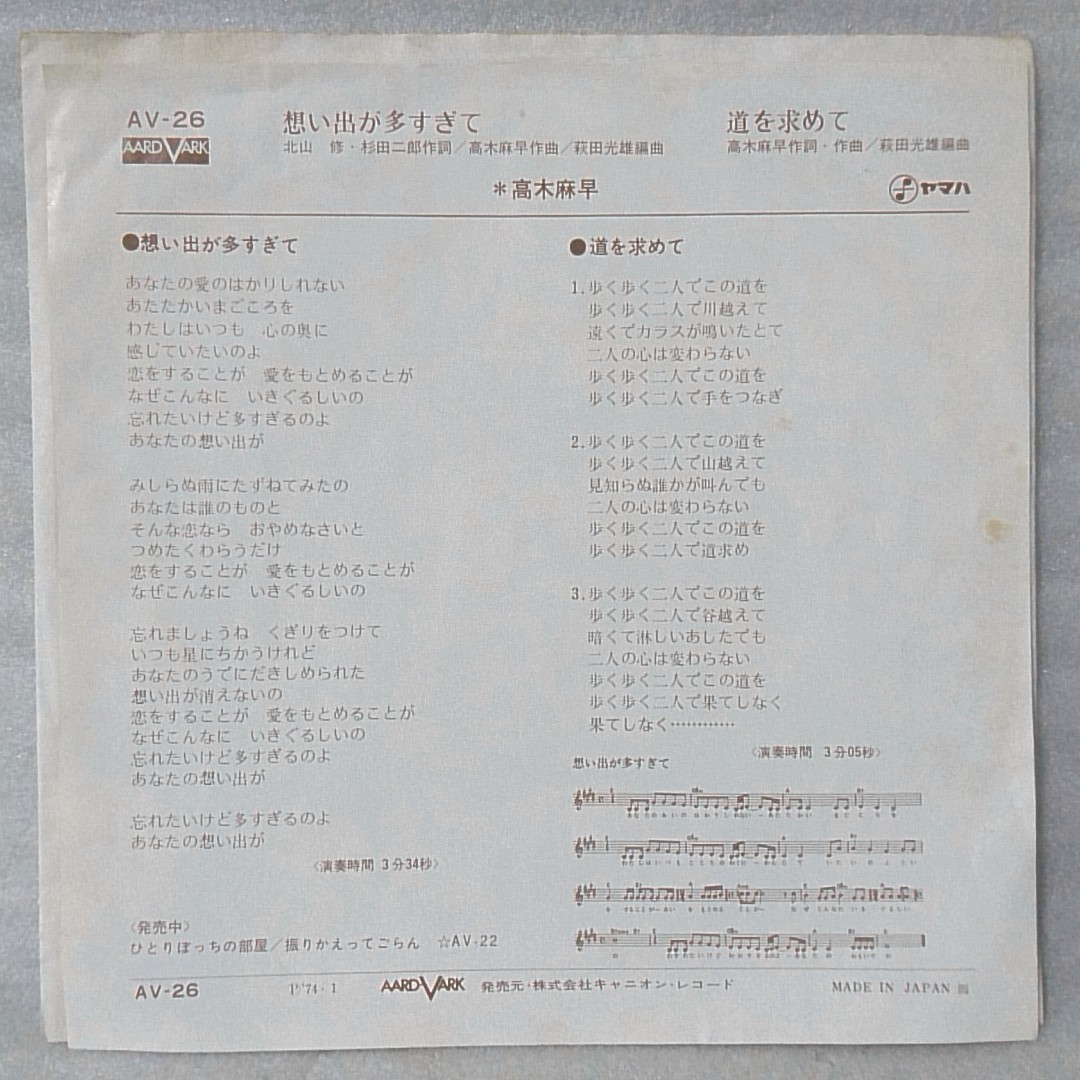 AV-26
AARDVARK
想い出が多すぎて
北山 修・杉田二郎作詞/高木麻早作曲/萩田光雄編曲
道を求めて
高木麻早作詞・作曲/萩田光雄編曲
*高木麻早
ヤマハ
●想い出が多すぎて
あなたの愛のはかりしれない
あたたかいまごころを
わたしはいつも 心の奥に
感じていたいのよ
恋をすることが 愛をもとめることが
なぜこんなに いきぐるしいの
忘れたいけど多すぎるのよ
あなたの想い出が
みしらぬ雨にたずねてみたの
あなたは誰のものと
そんな恋なら おやめなさいと
つめたくわらうだけ
恋をすることが 愛をもとめることが
なぜこんなに いきぐるしいの
忘れましょうね くぎりをつけて
いつも星にちかうけれど
あなたのうでにだきしめられた
想い出が消えないの
恋をすることが 愛をもとめることが
なぜこんなに いきぐるしいの
忘れたいけど多すぎるのよ
あなたの想い出が
忘れたいけど多すぎるのよ
あなたの想い出が
〈演奏時間 3分34秒〉
〈発売中〉
ひとりぼっちの部屋/振りかえってごらん ☆AV-22
●道を求めて
1.歩く歩く二人でこの道を
歩く歩く二人で川越えて
遠くでカラスが鳴いたとて
二人の心は変わらない
歩く歩く二人でこの道を
歩く歩く二人で手をつなぎ
2.歩く歩く二人でこの道を
歩く歩く二人で山越えて
見知らぬ誰かが叫んでも
二人の心は変わらない
歩く歩く二人でこの道を
歩く歩く二人で道求め
3.歩く歩く二人でこの道を
歩く歩く二人で谷越えて
暗くて淋しいあしたでも
二人の心は変わらない
歩く歩く二人でこの道を
歩く歩く二人で果てしなく
果てしなく…………
〈演奏時間 3分05秒〉
想い出が多すぎて
AV-26
Ⓟ'74・1
AARDVARK
発売元・株式会社キャニオン・レコード
MADE IN JAPAN